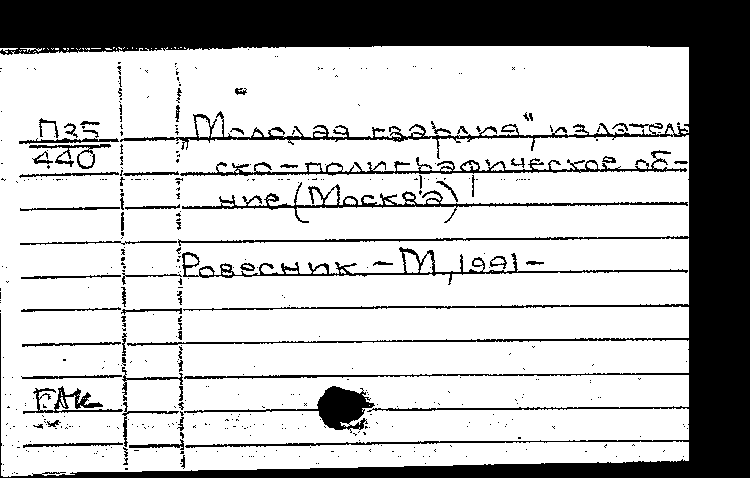 П35 "Молодая гвардия", издатель
440 ско-полиграфическое об-
ние (Москва)
Ровесник. - М, 1991 -
ГАК